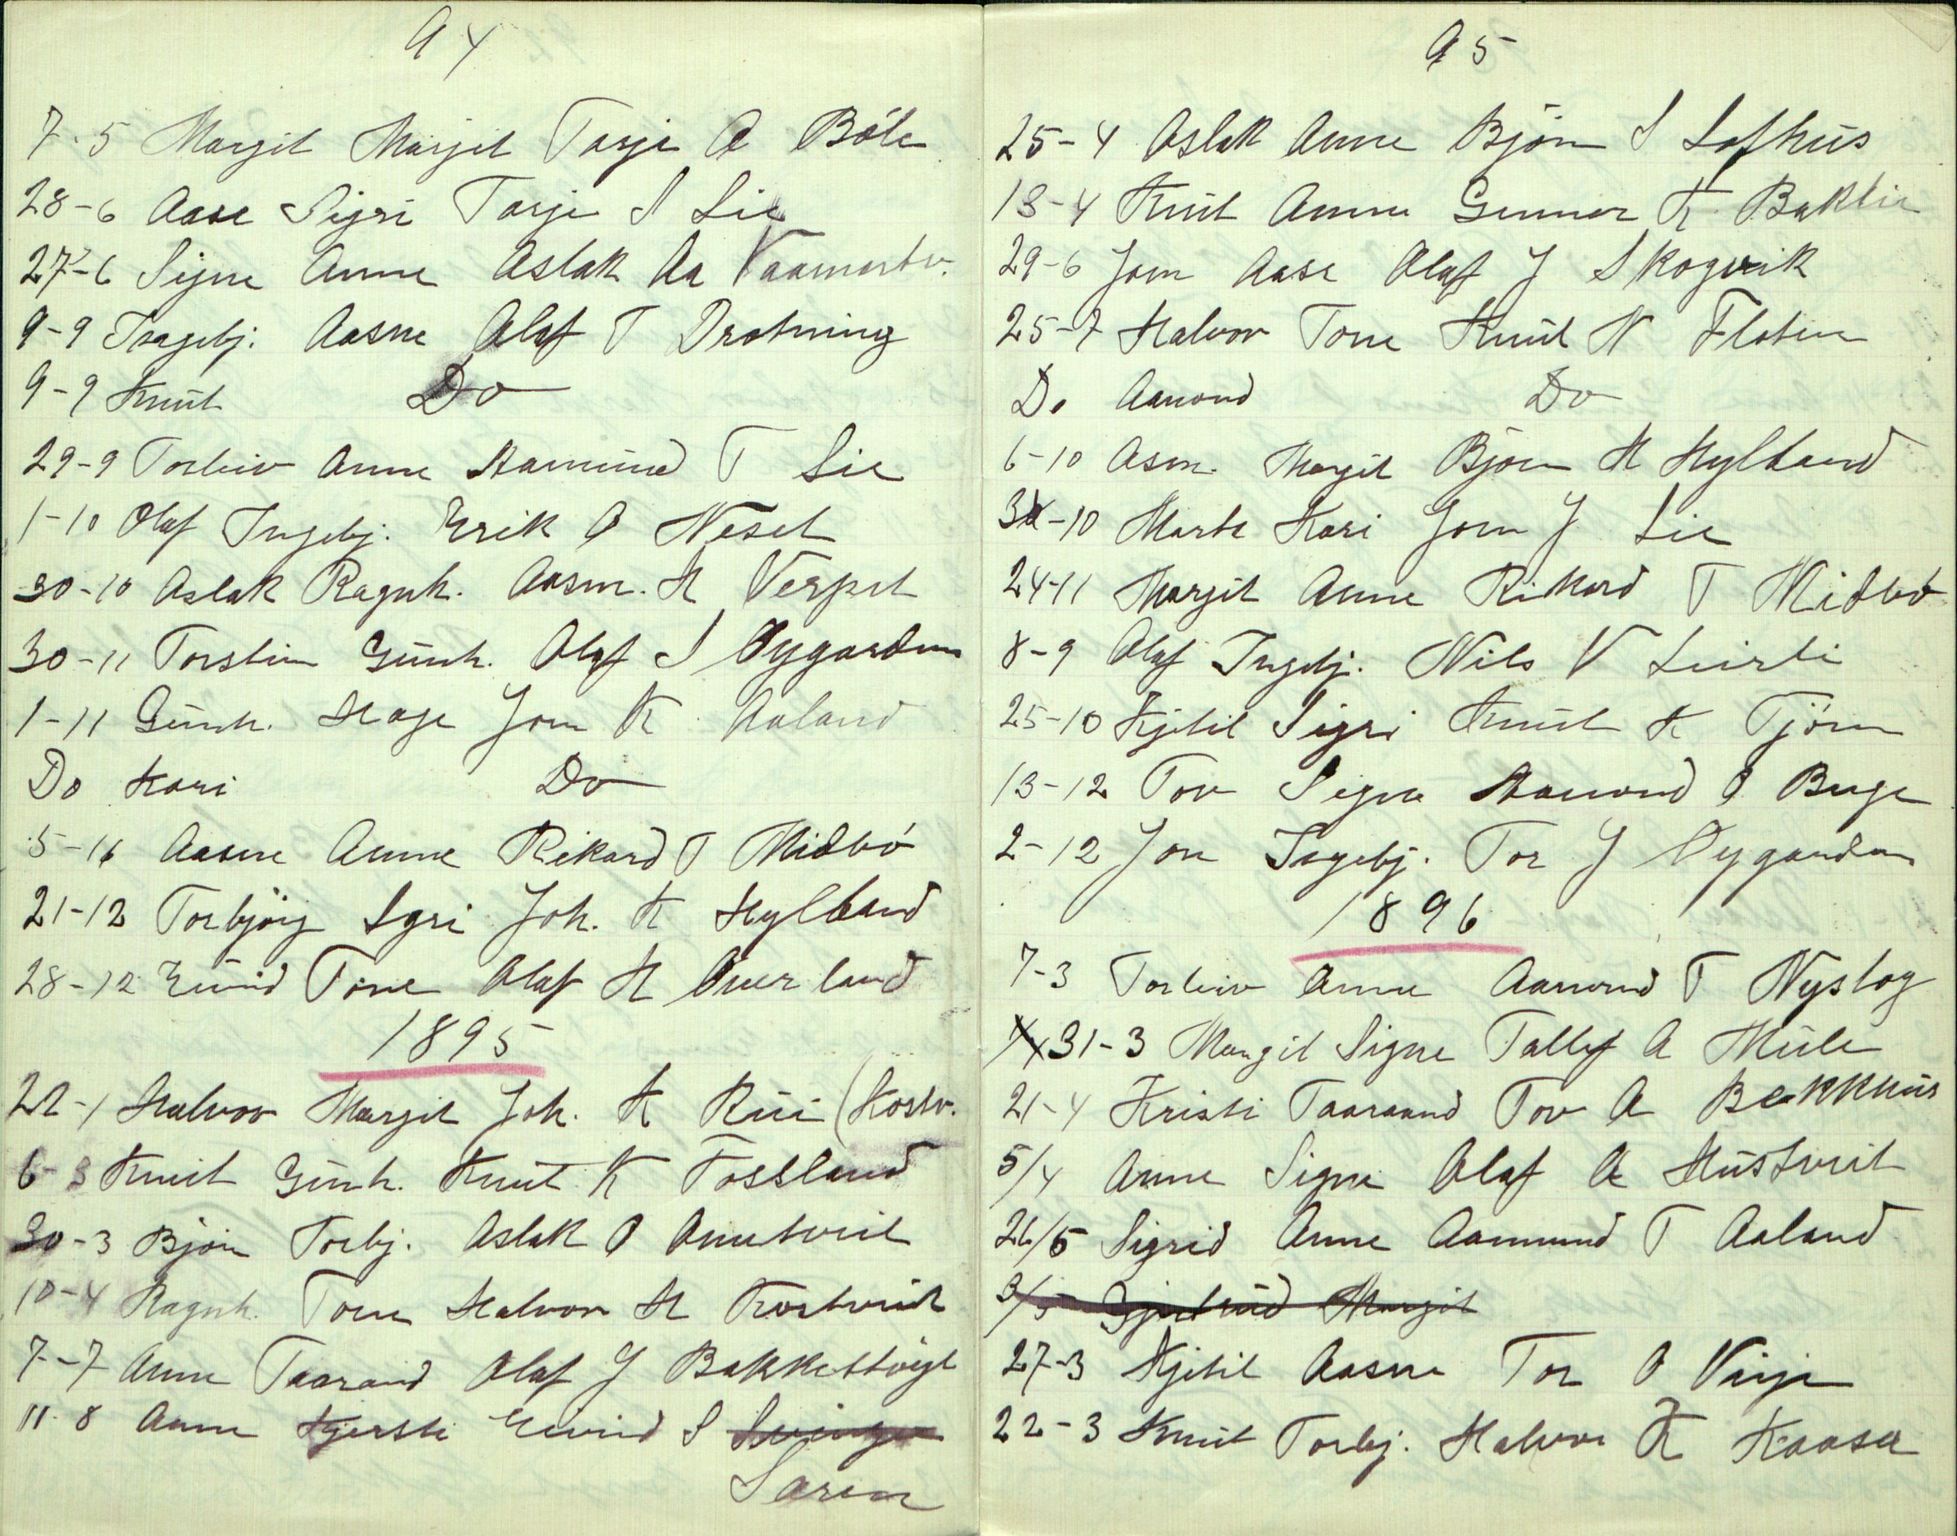 94
7-5 Margit Margit Tarje A Böle
28-6 Aase Sigri Tarje S Lie
27-6 Signe Anne Aslak Aa
9-9 Ingebj. Aasne Olaf T Drotning
9-9 Knut Do
29-9 Torleiv Anne Aamund T Lie
1-10 Olaf Ingebj. Erik O Neset
30-10 Aslak Ragnh. Aasm. H Verpet
30-11 Torstein Gunh. Olaf S Øygarden
1-11 Gunh. Hage Jon K Aaland
Do Kari Do
5-11 Aasne Anne Rikard T Midbö
21-12 Torbjörg Sgri Joh. K Hylland
28-12 Eivind Tone Olaf H Overland
1895
22-1 Halvor Margit Joh. K Rui (Kostv.
6-3 Knut Gunh. Knut K Fossland
30-3 Bjön Torbj. Aslak O Amtveit
10-4 Ragnh. Tone Halvor H Kostveit
7-7 Anne Taarand Olaf J Bakkestöyl
11-8 Anne Kjersti Eivind S
Saren
95
25-4 Aslak Anne Bjön S Lofhus
13-4 Knut Anne Gunnar K Baklie
29-6 Jon Aase Olaf J Skogvik
25-7 Halvor Tone Knut N Flaten
Do Aamond Do
6-10 Asm. Margit Bjön H Hylland
31-10 Marte Kari Jon J Lie
24-11 Margit Anne Rikard T Midbö
8-9 Olaf Ingebj. Nils V Leirli
25-10 Kjetil Sigri Knut K Tjönn
13-12 Tov Signe Aamond O Buge
2-12 Jon Ingebj. Tor J Øygarden
1896
7-3 Torleiv Anne Aamund T Nystog
31-3 Margit Signe Tallef A Mule
21-4 Kristi Taaraand Tov A Bekkhus
5/4 Anne Signe Olaf A Hustveit
26/5 Sigrid Anne Aamund T Aaland
3/5 Gjertrud Margit
27-3 Kjetil Aasne Tor O Vaje
22-3 Knut Torbj. Halvor K Kaasa